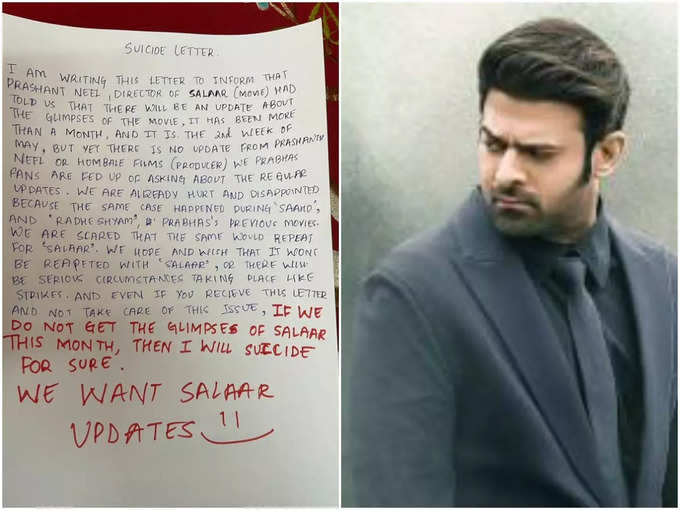 SUICIDE LETTER.
I AM WRITING THIS LETTER TO INFORM THAT
PRASHANT NEEL, DIRECTOR OF SALAAR (MOVIE) HAD
TOLD US THAT THERE WILL BE AN UPDATE ABOUT
THE GLIMPSES OF THE MOVIE, IT HAS BEEN MORE
THAN A MONTH, AND IT IS THE 2nd WEEK OF
MAY, BUT YET THERE IS NO UPDATE FROM PRASHANTH
NEEL OR HOMBALE FILMS (PRODUCER) WE PRABHAS
FANS ARE FED UP OF ASKING ABOUT THE REGULAR
UPDATES. WE ARE ALREADY HURT AND DISAPPOINTED
BECAUSE THE SAME CASE HAPPENED DURING "SAAHO",
AND "RADHESHYAM", PRABHAS'S PREVIOUS MOVIES.
WE ARE SCARED THAT THE SAME WOULD REPEAT
FOR "SALAAR". WE HOPE AND WISH THAT IT WONT
BE REAPETED WITH "SALAAR", OR THERE WILL
BE SERIOUS CIRCUMSTANCES TAKING PLACE LIKE
STRIKES. AND EVEN IF YOU RECIEVE THIS LETTER
AND NOT TAKE CARE OF THIS ISSUE, IF WE
DO NOT GET THE GLIMPSES OF SALAAR
THIS MONTH, THEN I WILL SUICIDE
FOR SURE.
WE WANT SALAAR
UPDATES !!